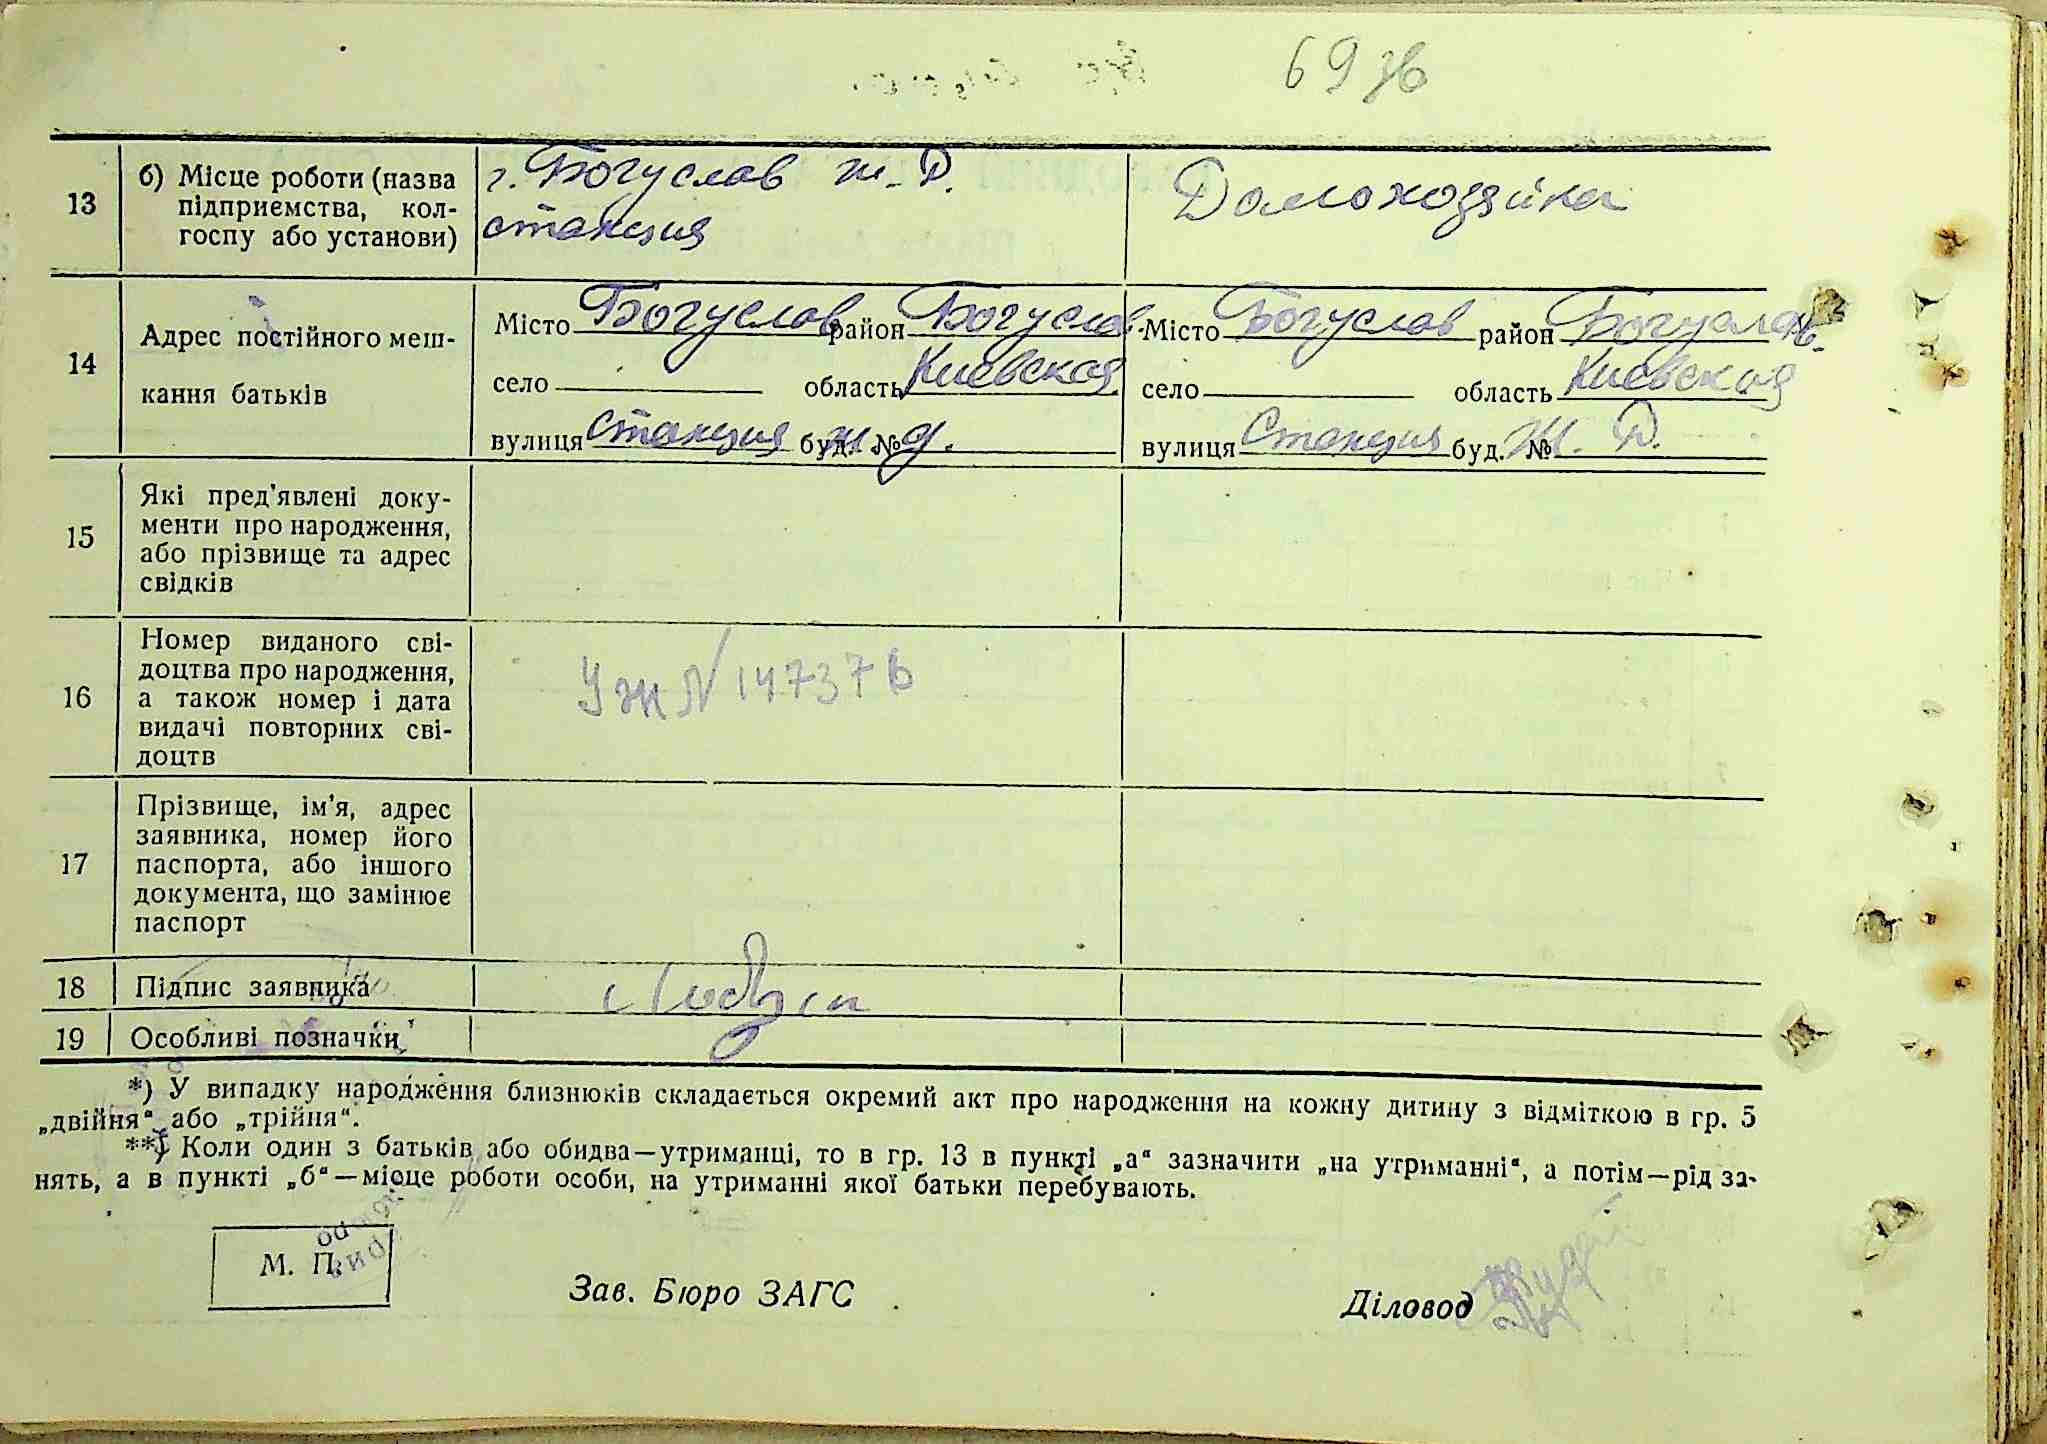 69 зв
13
б) Місце роботи (назва
підприємства, кол-
госпу або установи)
г. Богуслав ж. Д.
станция
Домохозяйка
14
Адрес постійного меш-
кання батьків
Місто Богуслав район Богуслав.
село область Киевская
вулиця станция буд. № ж. д.
Місто Богуслав район Богуслав.
село область Киевская
вулиця Станция буд. № Ж. Д.
15
Які пред'явлені доку-
менти про народження,
або прізвище та адрес
свідків
16
Номер виданого сві-
доцтва про народження,
а також номер і дата
видачі повторних сві-
доцтв
УЖ № 147376
17
Прізвище, ім'я, адрес
заявника, номер його
паспорта, або іншого
документа, що замінює
паспорт
18
Підпис заявника
19
Особливі позначки
*) У випадку народження близнюків складається окремий акт про народження на кожну дитину з відміткою в гр. 5
„двійня“ або „трійня“.
**) Коли один з батьків або обидва—утриманці, то в гр. 13 в пункті „а“ зазначити „на утриманні“, а потім—рід за-
нять, а в пункті „б“—місце роботи особи, на утриманні якої батьки перебувають.
М. П.
Зав. Бюро ЗАГС
Діловод